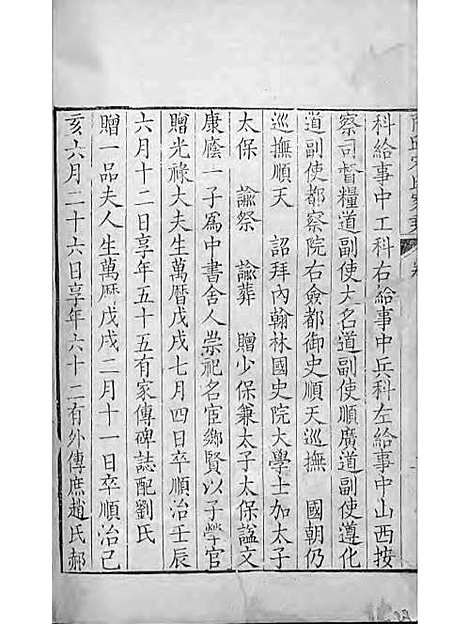 科給事中工科右給事中兵科左給事中山西按
察司督糧道副使大名道副使順廣道副使遵化
道副使都察院右僉都御史順天巡撫　國朝仍
巡撫順天　詔拜內翰林國史院大學士加太子
太保　諭祭　諭葬　贈少保兼太子太保謚文
康廕一子爲中書舍人崇祀名宦鄉賢以子犖官
贈光祿大夫生萬曆戊戌七月四日卒順治壬辰
六月十二日享年五十五有家傳碑誌配劉氏
贈一品夫人生萬曆戊戌二月十一日卒順治己
亥六月二十六日享年六十二有外傳庶趙氏郝